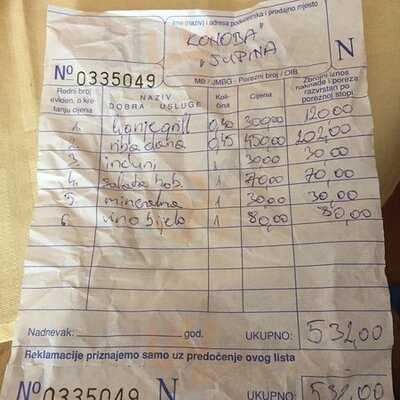 Ime (naziv) i adresa poduzetnika i prodajno mjesto
KONOBA
"ŠUPINA"
N
Nº 0335049
MB / JMBG - Porezni broj / OIB
Redni broj eviden. o kretanju cijena
NAZIV DOBRA - USLUGE
Količina
Cijena
Zbrojni iznos naknade i poreza razvrstan po poreznoj stopi
1. 0,40 300,00 120,00
2. riba dana 0,45 450,00 202,00
3 1 30,00 30,00
4. salata hob. 1 70,00 70,00
5 mineralna 1 30,00 30,00
6. vino bijelo 1 80,00 80,00
Nadnevak: god. UKUPNO: 532,00
Reklamacije priznajemo samo uz predočenje ovog lista
Nº 0335049 N UKUPNO: 532,00